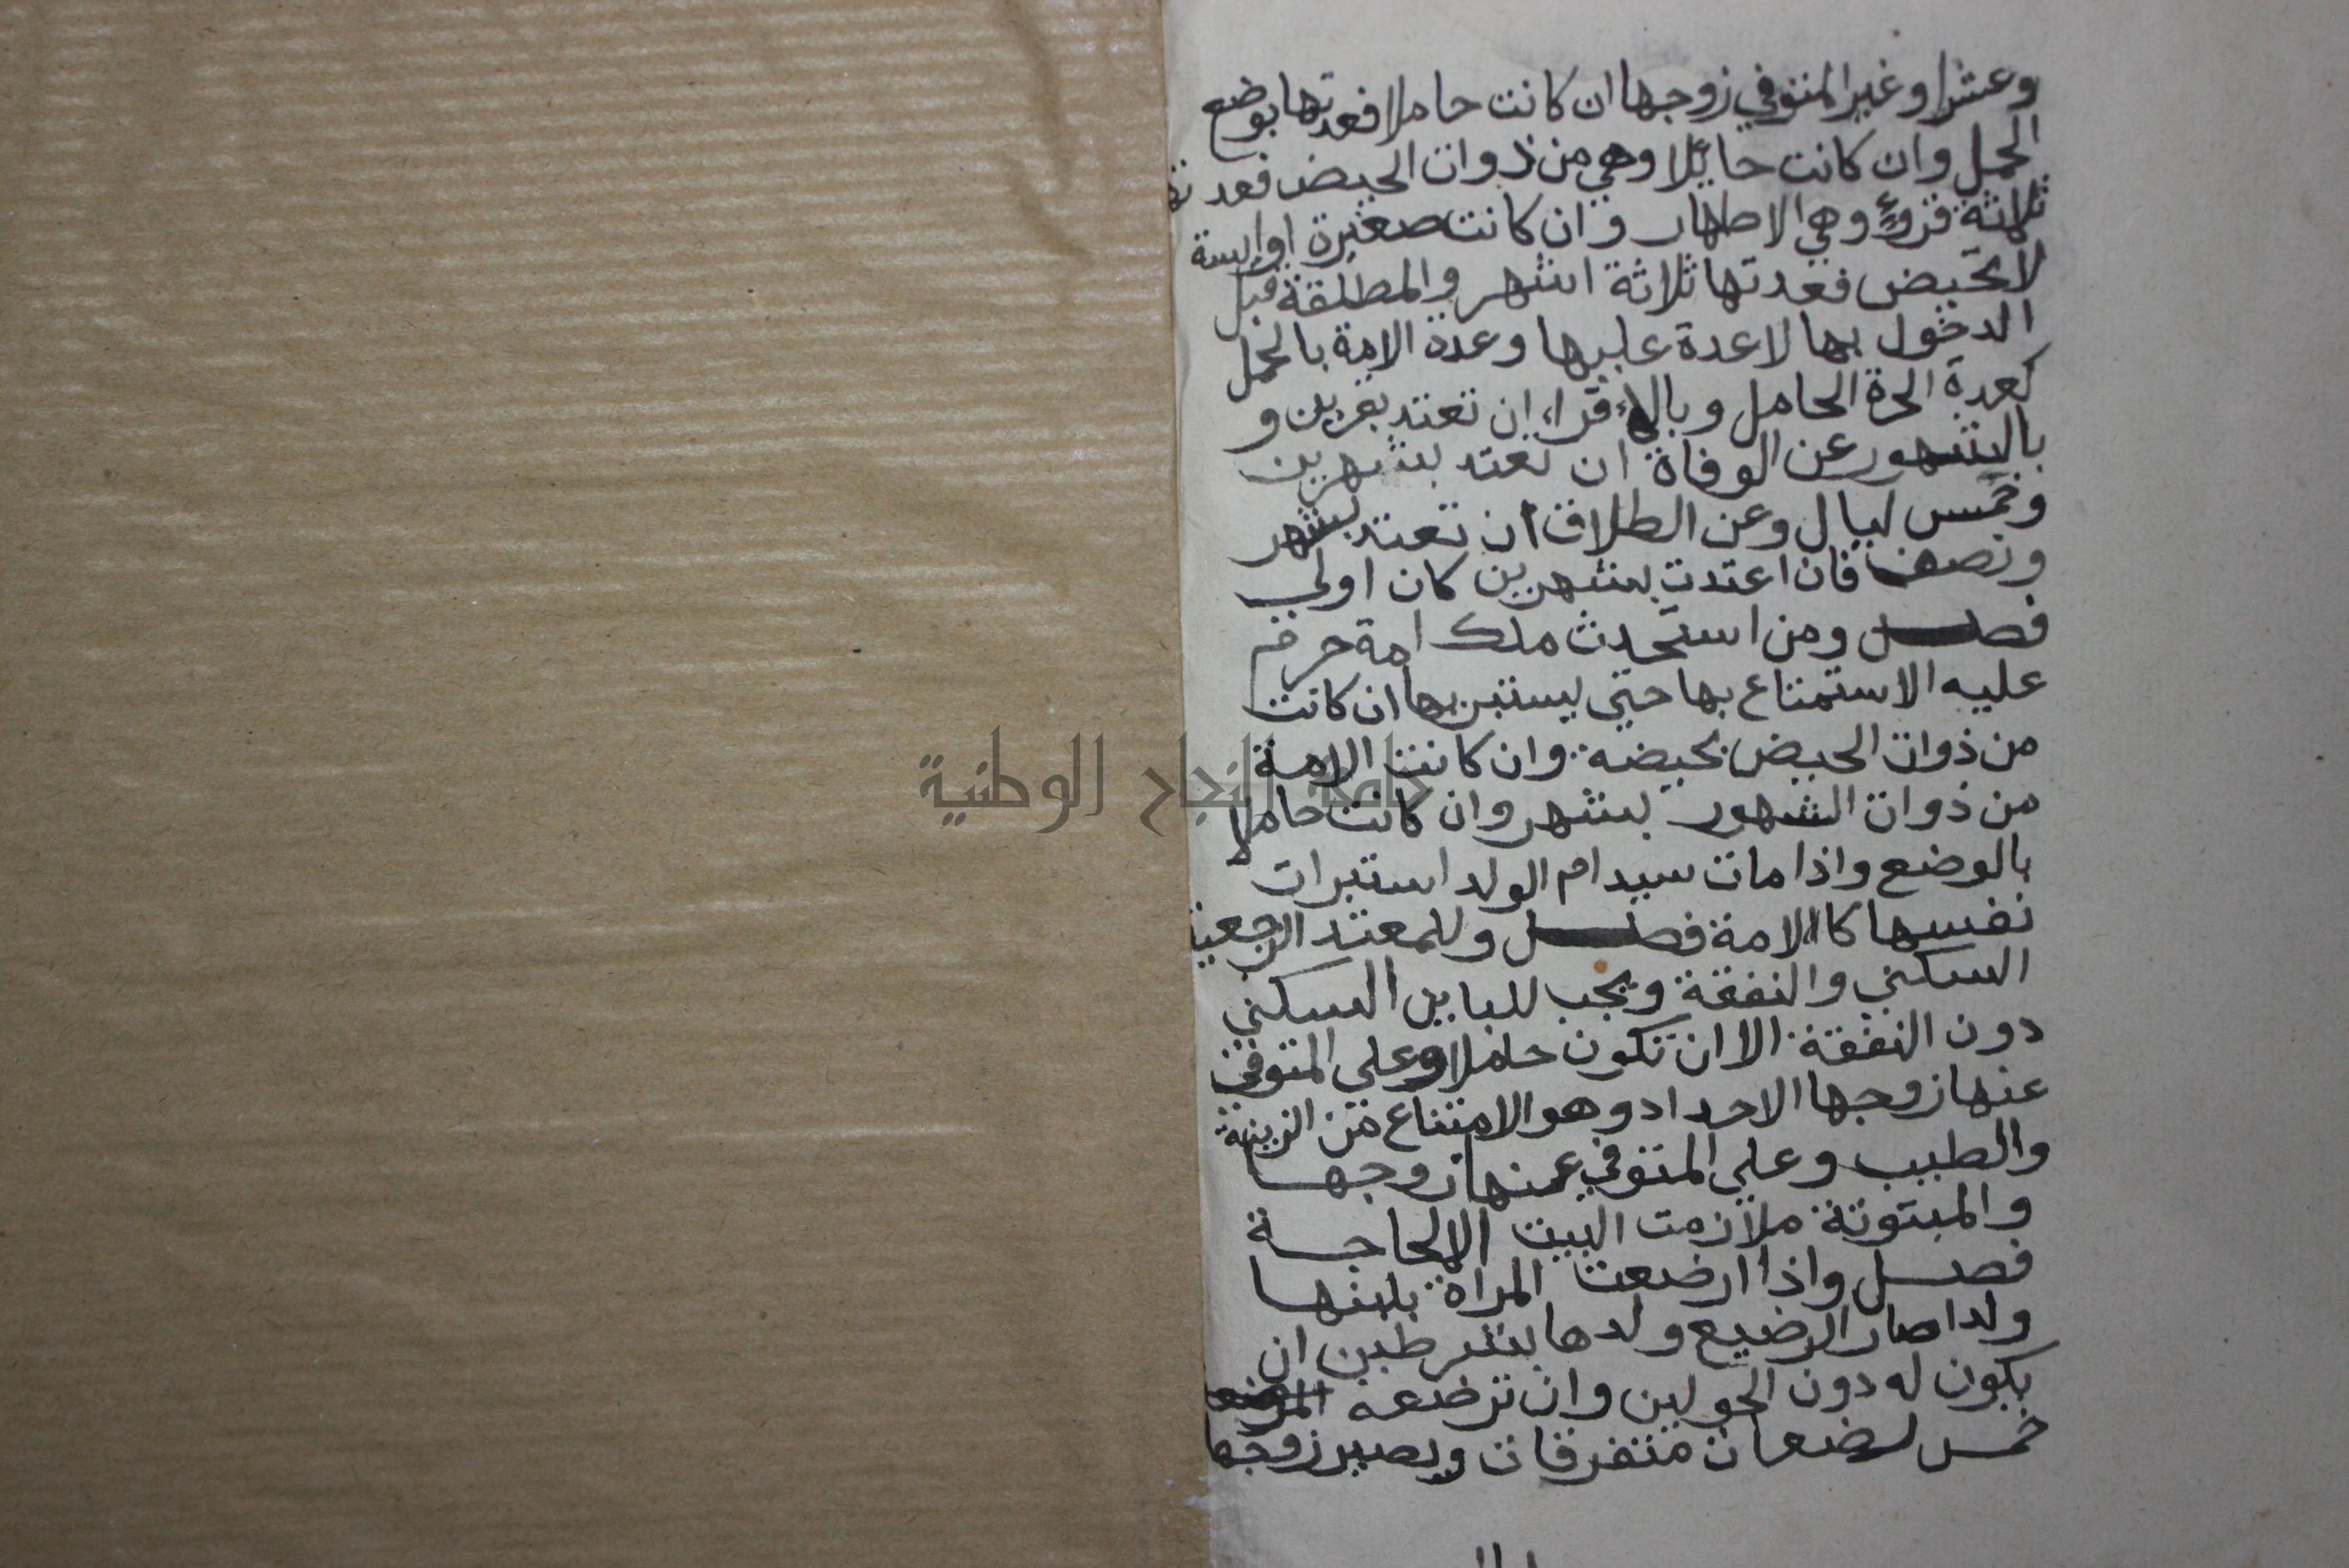 وعشرا وغير المتوفي زوجها ان كانت حاملا فعدتها بوضع
الحمل وان كانت حايلا وهي من ذوات الحيض فعدتها
ثلاثة قروء وهي الاطهار وان كانت صغيرة او ايسة
لا تحيض فعدتها ثلاثة اشهر والمطلقة قبل
الدخول بها لا عدة عليها وعدة الامة بالحمل
كعدة الحرة الحامل وبالاقراء ان تعتد بقرين و
بالشهور عن الوفاة ان تعتد بشهرين
وخمس ليال وعن الطلاق ان تعتد بشهر
ونصف فان اعتدت بشهرين كان اولي
فصل ومن استحدث ملك امة حرم
عليه الاستمتاع بها حتي يستبريها ان كانت
من ذوات الحيض بحيضة وان كانت الامة
من ذوات الشهور بشهر وان كانت حاملا
بالوضع واذا مات سيد ام الولد استبرات
نفسها كا الامة فصل وللمعتد الرجعية
السكني والنفقة ويجب للباين السكني
دون النفقة الا ان تكون حاملا وعلي المتوفي
عنها زوجها الاحداد وهو الامتناع من الزينة
والطيب وعلي المتوفي عنها زوجها
والمبتوتة ملازمت البيت الا لحاجة
فصل واذا ارضعت المراة بلبنها
ولدا صار الرضيع ولدها بشرطين ان
يكون له دون الحولين وان ترضعه
خمس رضعات متفرقات ويصير زوجها
جامعة النجاح الوطنية